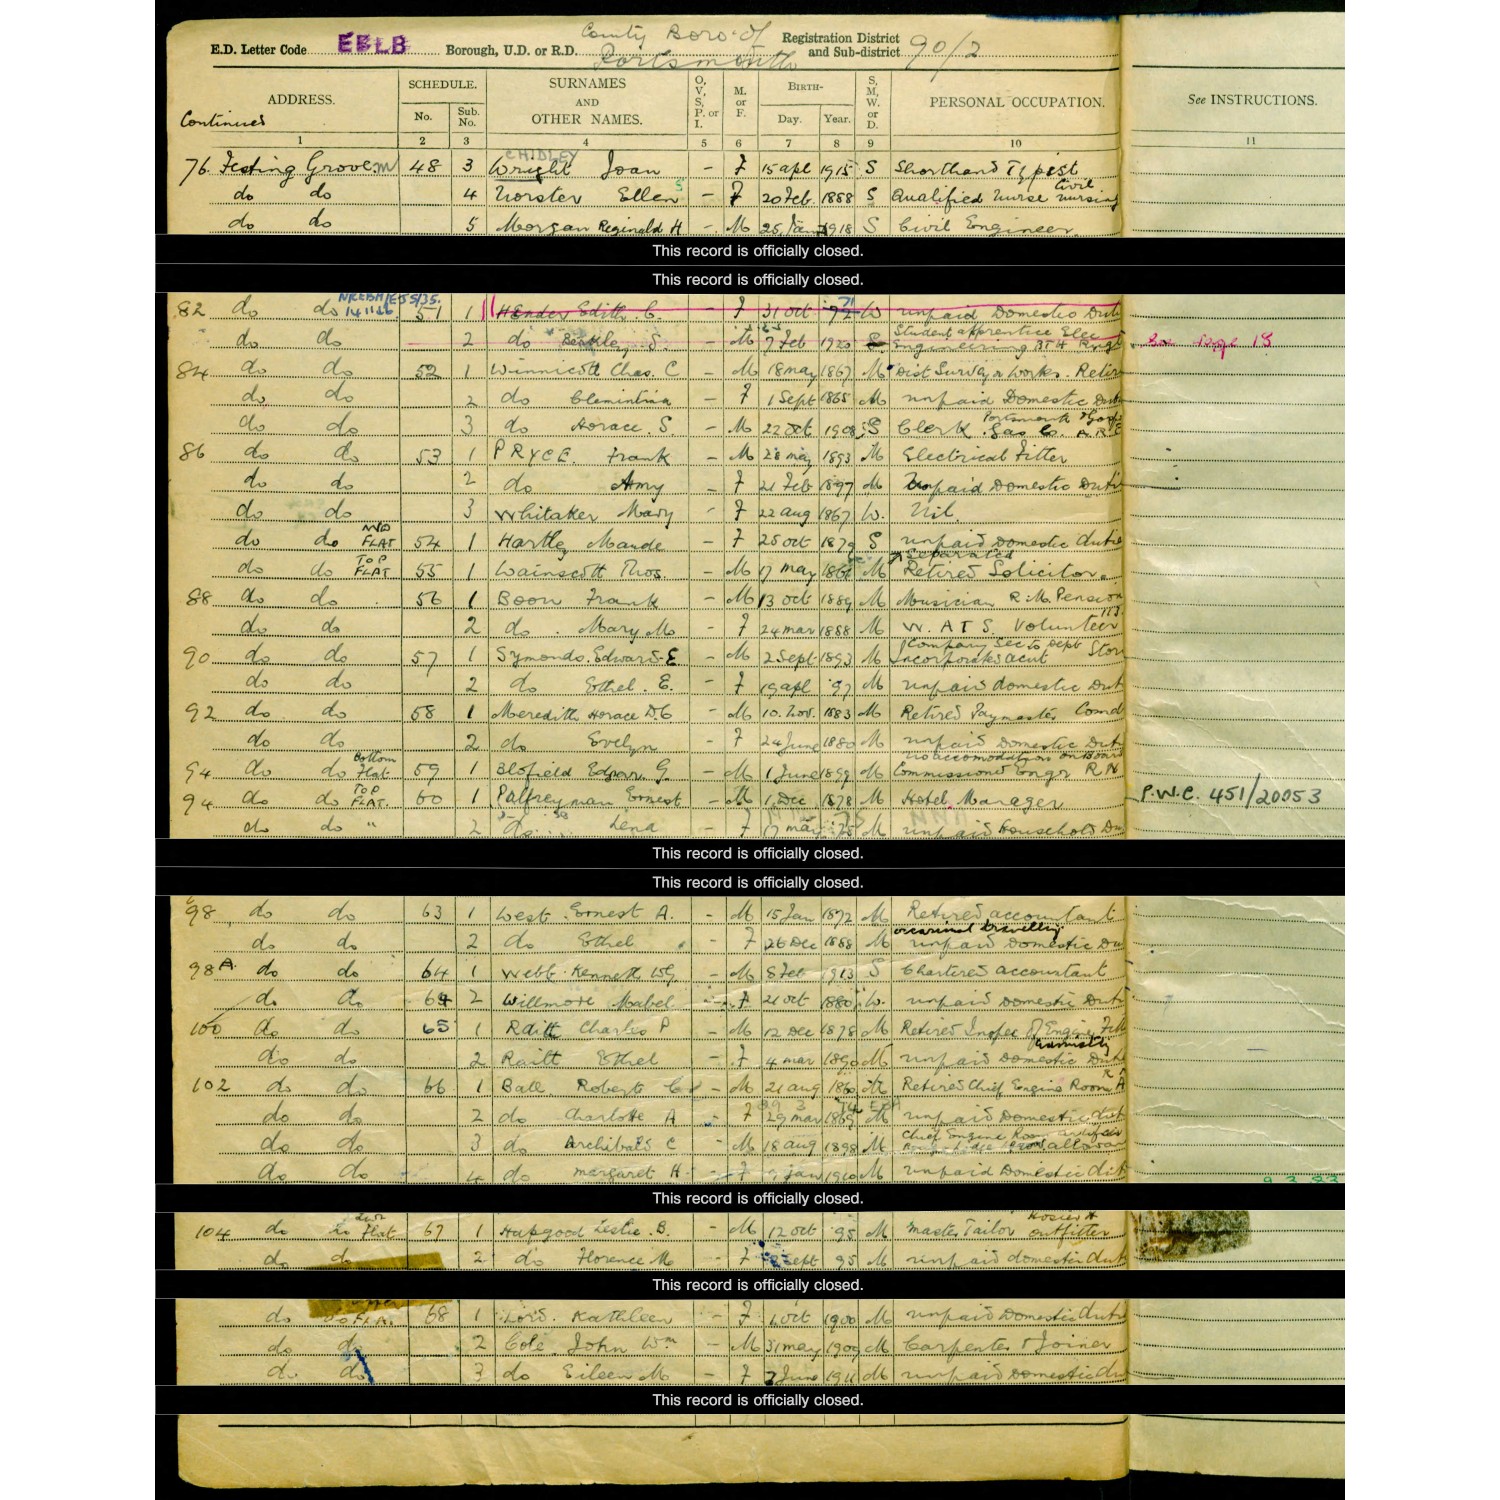 County Boro. of
E.D. Letter Code EBLB Borough, U.D. or R.D. Portsmouth Registration District and Sub-district 90/2
ADDRESS. SCHEDULE. No. Sub. No. SURNAMES AND OTHER NAMES. O, V, S, P. or I. M. or F. BIRTH- Day. Year. S, M, W. or D. PERSONAL OCCUPATION. See INSTRUCTIONS.
Continued
1 2 3 4 5 6 7 8 9 10 11
CHIDLEY
76. Festing Grove 48 3 Wright Joan - F 15 apl 1915 S Shorthand Typist
do do 4 Ellen - F 20 Feb. 1888 S Qualified nurse Civil nursing
do do 5 Morgan Reginald H - M 25 Jan 1918 S Civil Engineer
This record is officially closed.
This record is officially closed.
82 do do 51 1 Edith. C. - F 31 oct W unpaid Domestic Duti
do do 2 do S. - M 7 Feb 1920 S Student apprentice Elec Engineering BTH Rugby See page 18
84 do do 52 1 Winnicott Chas. C - M 18 may 1867 M Dist Surveyor Works. Retir
do do 2 do Clemintina - F 1 Sept 1865 M unpaid Domestic Dut
do do 3 do Horace. S. - M 22 Oct 1908 S Clerk Portsmouth & Gosp Gas Co. A.R.P
86 do do 53 1 PRYCE. Frank - M 28 may 1893 M Electrical Fitter
do do 2 do Amy - F 21 Feb 1897 M Unpaid Domestic Duti
do do 3 Whitaker Mary - F 22 aug 1867 W. Nil.
do do MID FLAT 54 1 Hartley Maude - F 25 oct 1879 S unpaid Domestic duties
do do TOP FLAT 55 1 Wainscott Thos. - M 17 may M Separated Retired Solicitor.
88 do do 56 1 Boon Frank - M 13 oct 1889 M Musician R.M. Pension
do do 2 do. Mary M - F 24 mar 1888 M W. A T S. Volunteer
90 do do 57 1 Symonds. Edward. E - M 2 Sept 1893 M Company Sec to Dept Stor Incorporated acnt
do do 2 do Ethel. E. - F 19 apl 97 M unpaid domestic Dut
92 do do 58 1 Meredith Horace D.C - M 10. Nov. 1883 M Retired Paymaster Comd
do do 2 do Evelyn - F 24 June 1880 M unpaid Domestic Dut
94 do do Bottom Flat 59 1 Blofield Edgar. G. - M 1 June 1899 M no accomodation on Board Commissioned Engr RN
94 do do TOP FLAT 60 1 Palfreyman Ernest - M 1 Dec 1878 M Hotel Manager P.W.C. 451/20053
do do " 2 do Lena - F 17 mar 75 M unpaid Household Du
This record is officially closed.
This record is officially closed.
98 do do 63 1 West. Ernest A. - M 15 Jan 1872 M Retired accountant
do do 2 do Ethel - F 26 Dec 1888 M occasional travelling unpaid Domestic Du
98A do do 64 1 Webb Kenneth W.G. - M 8 Feb 1913 S Chartered accountant
do do 64 2 Willmore Mabel - F 21 oct 1880 W. unpaid Domestic Duti
100 do do 65 1 Raitt Charles P - M 12 Dec 1878 M Retired Inspec of Engine Fitt Admiralty
do do 2 Raitt Ethel - F 4 mar 1890 M unpaid Domestic Duti
102 do do 66 1 Ball Robert - M 21 aug Retired Chief Engine Room A
do do 2 do Charlotte A F 29 mar 1869 M unpaid Domestic dut
do do 3 do Archibald C - M 18 aug 1898 M Chief Engine Room artificer
do do 4 do margaret H - F 9 Jan 1910 M unpaid Domestic dut
This record is officially closed.
104 do do Flat 67 1 Hapgood Leslie. B. - M 12 oct 95 M master Tailor Hosier & outfitter
do do 2 do Florence M - F Sept 95 M unpaid domestic dut
This record is officially closed.
do do Flat 68 1 Lord. Kathleen - F 1 oct 1900 M unpaid Domestic duti
do do 2 Cole. John Wm - M 31 may 1909 M Carpenter & Joiner
do do 3 do Eileen M - F 7 June 1911 M unpaid domestic du
This record is officially closed.